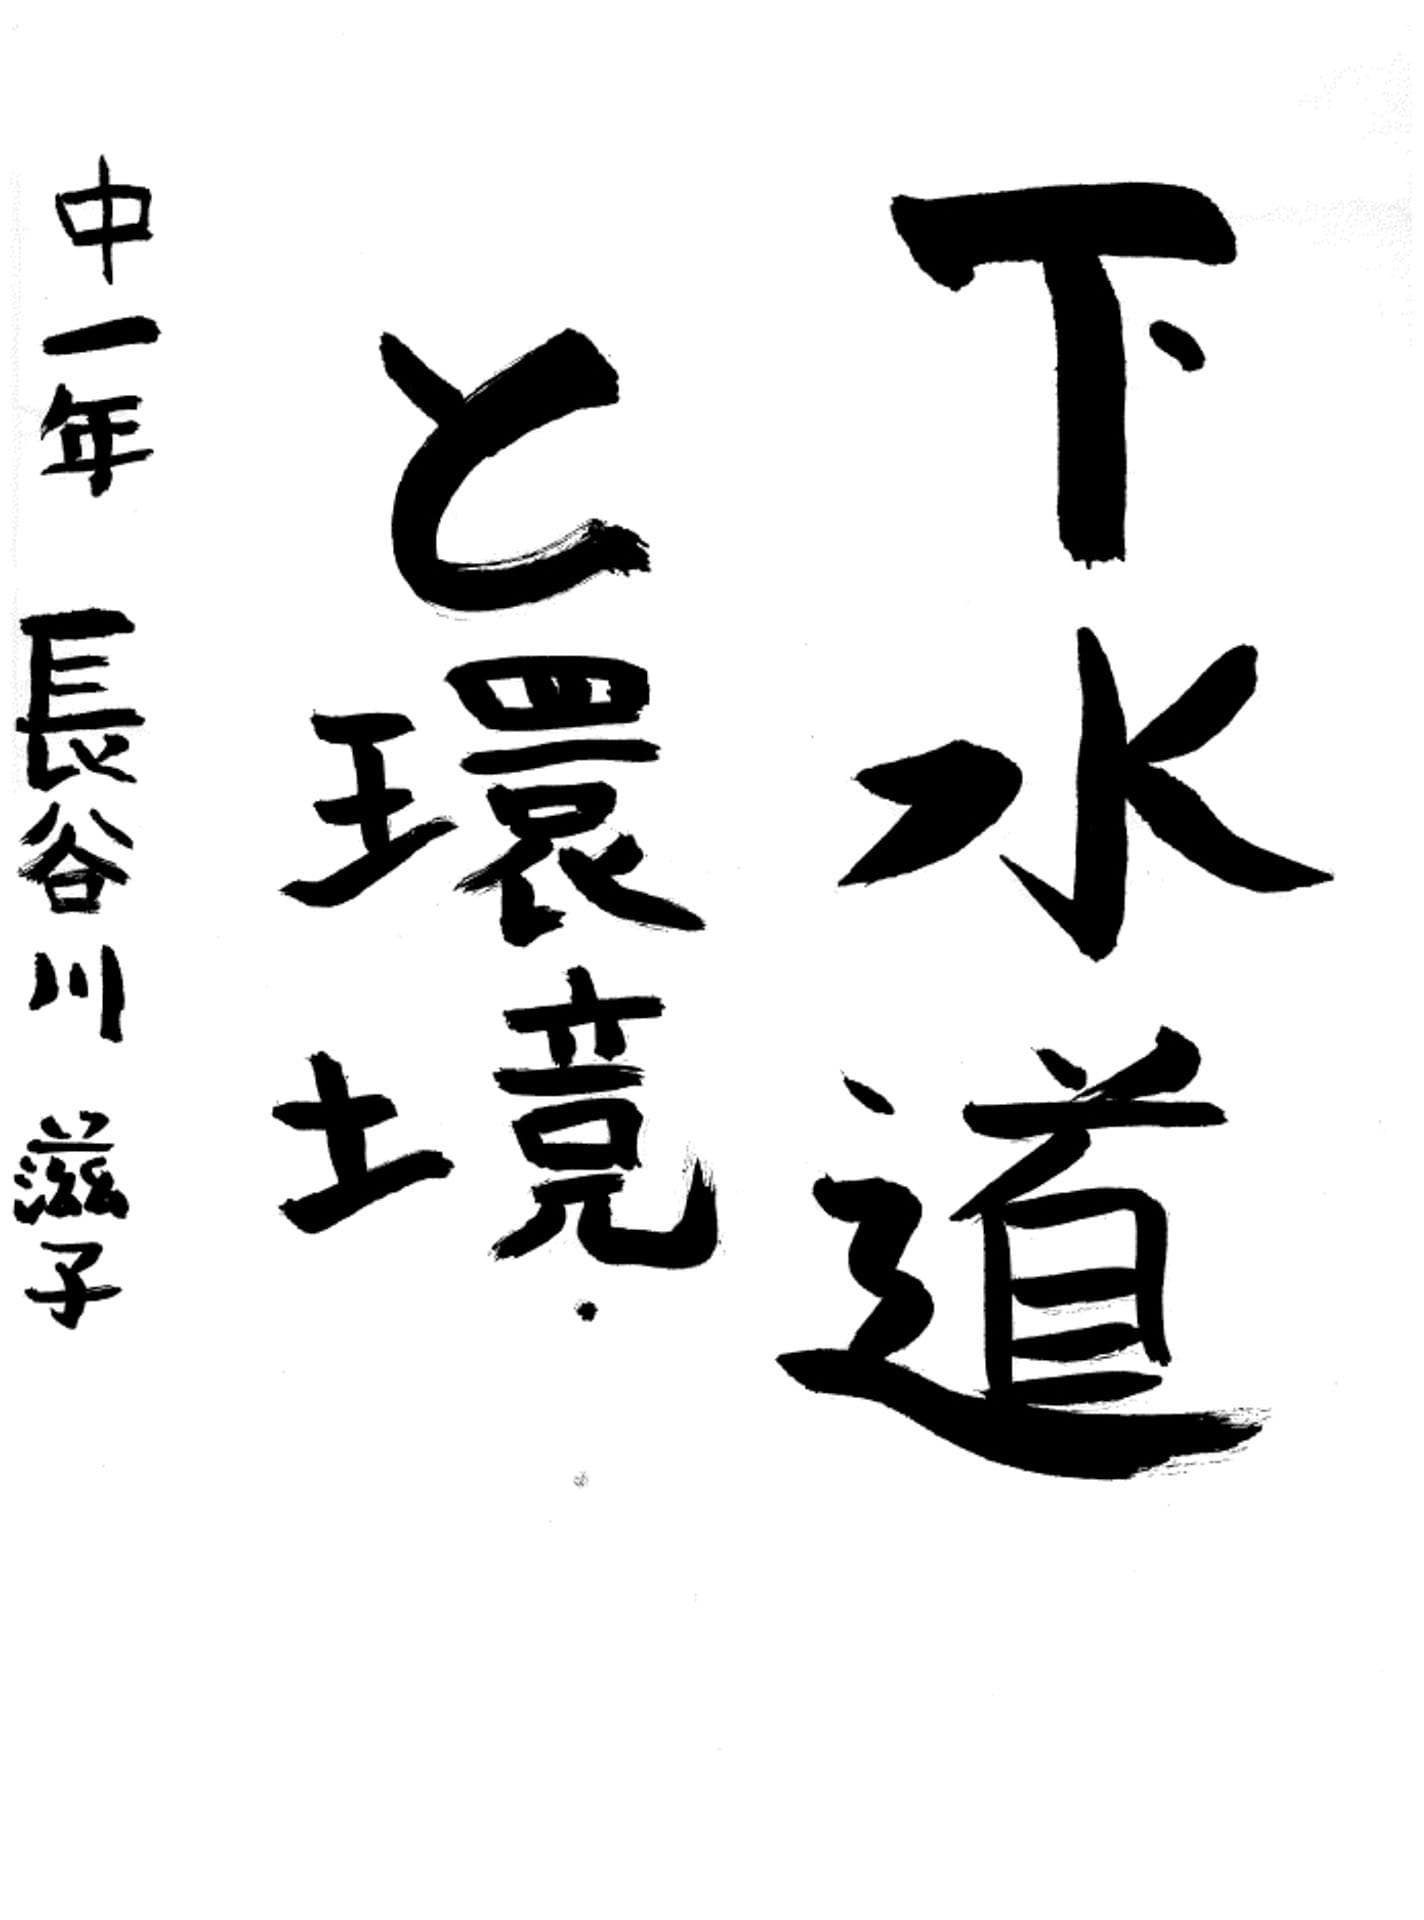 下水道
と環境
中一年 長谷川 滋子